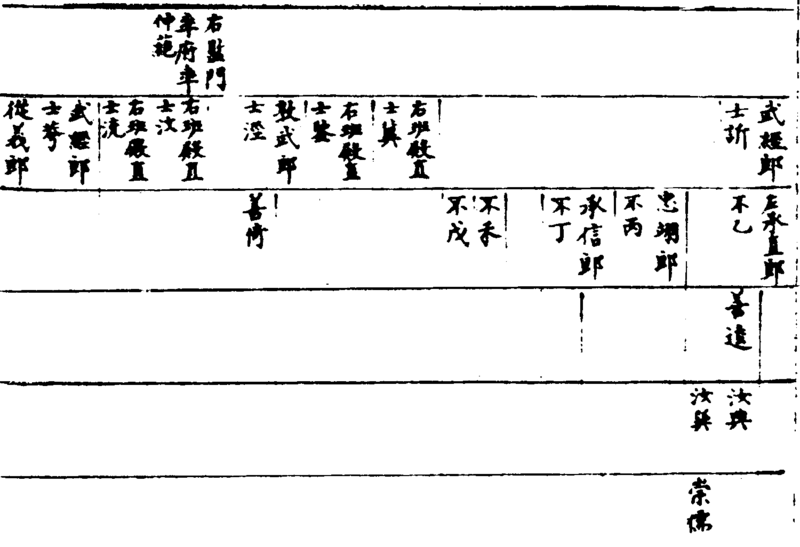 右監門
率府率
仲
武經郎
士訢
右班殿直
士
右班殿直
士鋻
敦武郎
士涇
右班殿直
士汶
右班殿直
士流
武經郎
士
從義郎
左承直郎
不乙
忠翊郎
不丙
承信郎
不丁
不
不戊
善脩
善遠
汝與
汝
崇儒